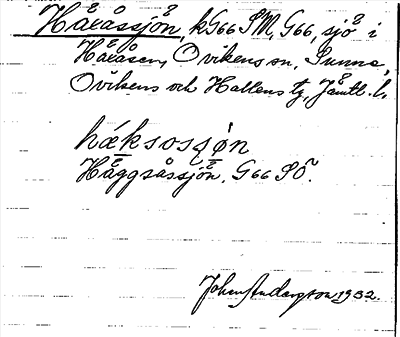 Håxåssjön, kG66 SM, G66, sjö i
Håxåsen, Ovikens sn, Sunne,
Ovikens och Hallens tg, Jämtl. l.
håksossjøn
Häggsåssjön. G66 SÖ.
John Anderzon 1932.